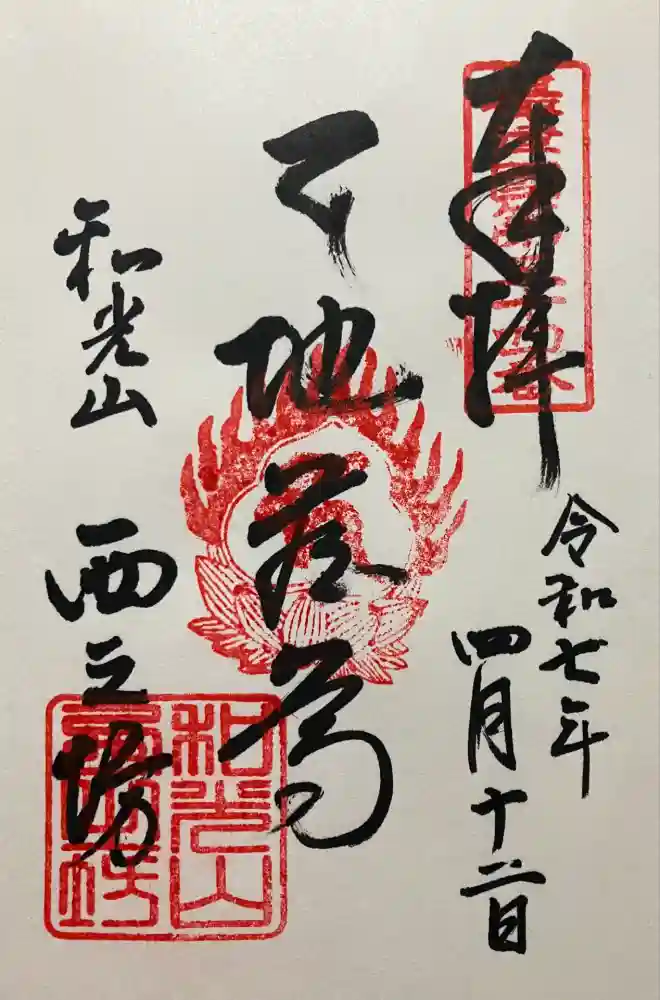 奉拝
令和七年
四月十二日
地蔵尊
和光山
西之坊
和光山